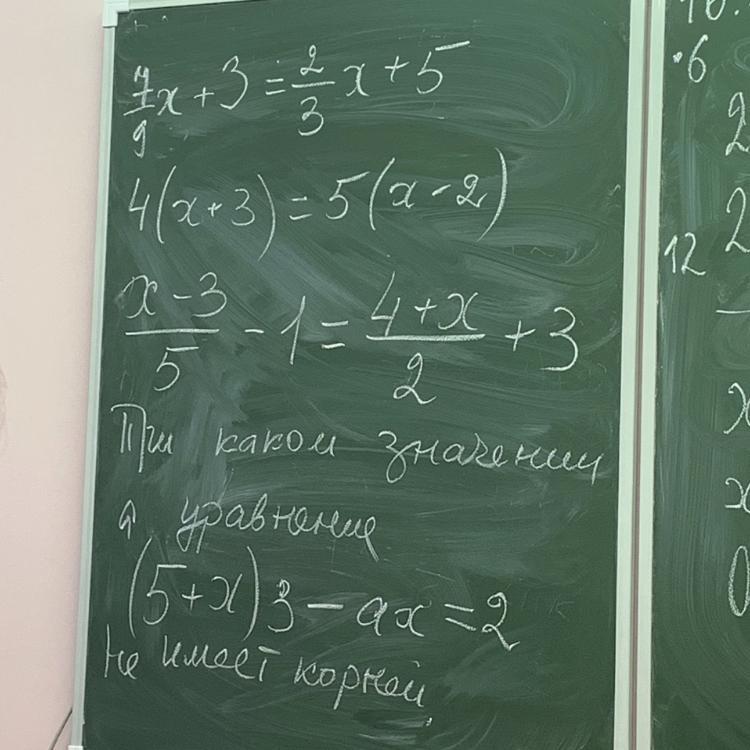 7/9 x + 3 = 2/3 x + 5
4(x+3) = 5(x-2)
(x-3)/5 - 1 = (4+x)/2 + 3
При каком значении
а уравнение
(5+x)3 - ax = 2
не имеет корней
10.
·6
2
2
12
x
x
0